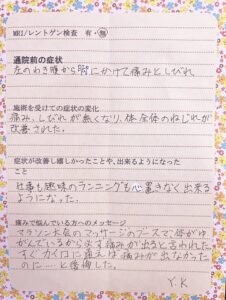 MRI/レントゲン検査 有・無
通院前の症状
左のわき腹から胸にかけて痛みとしびれ
施術を受けての症状の変化
痛み、しびれが無くなり、体全体のねじれが
改善された。
症状が改善し嬉しかったことや、出来るようになった
こと
仕事も趣味のランニングも心置きなく出来る
ようになった。
痛みで悩んでいる方へのメッセージ
マラソン大会のマッサージのブースで、体がゆ
がんでいるから必ず痛みが出ると言われた
すぐカイロに 痛みが出なかった
のに……と後悔した。
Y.K